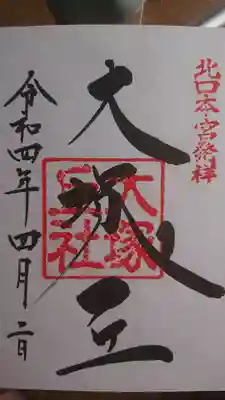 北口本宮発祥
大塚丘
大塚丘社
令和四年四月二日